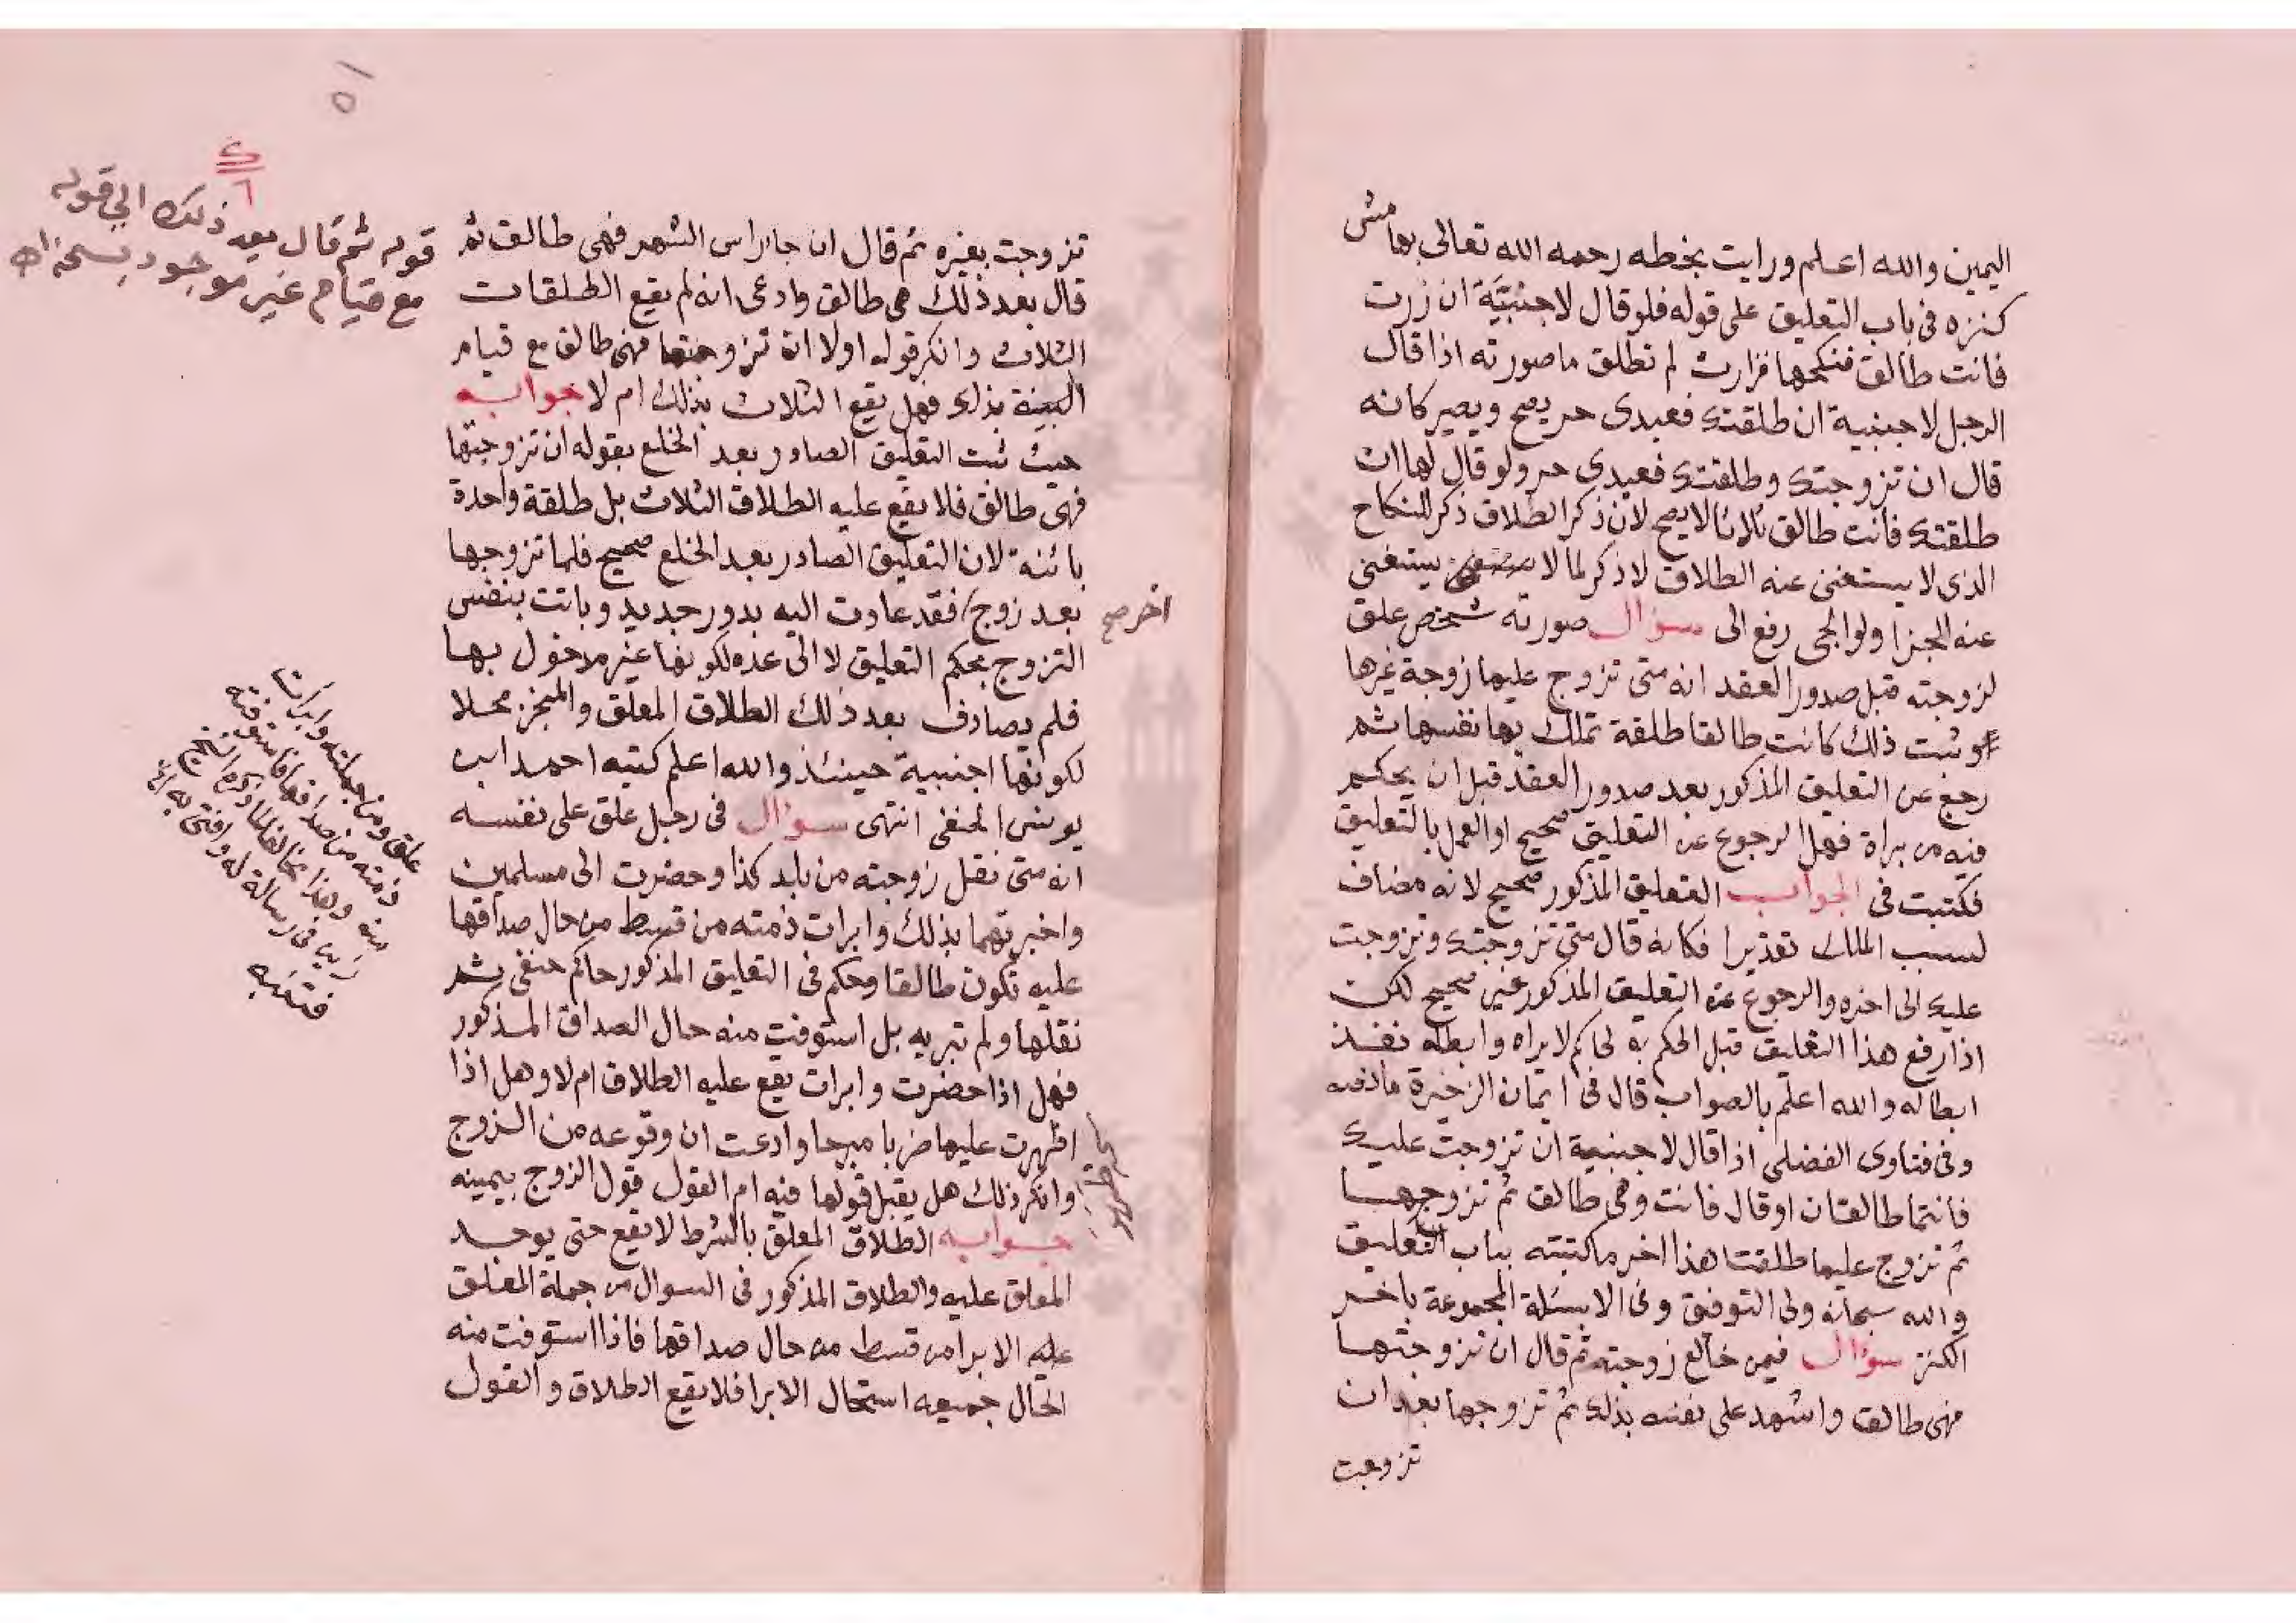 اليمين والله اعلم ورايت بخطه رحمه الله تعالى بهامش
كنزه فى باب التعليق على قوله فلو قال لاجنبية ان زرت
فانت طالق فنكحها فزارت لم تطلق ما صورته اذا قال
الرجل لاجنبية ان طلقتك فعبدى حر يصح ويصير كانه
قال ان تزوجتك وطلقتك فعبدى حر ولو قال لها ان
طلقتك فانت طالق ثلاثا لا يصح لان ذكر الطلاق ذكر للنكاح
الذى لا يستغنى عنه الطلاق لا ذكر لما لا يستغنى
عنه الجزا ولوالجى رفع الى سؤال صورته شخص علق
لزوجته قبل صدور العقد انه متى تزوج عليها زوجة غيرها
وثبت ذلك كانت طالقا طلقة تملك بها نفسها ثم
رجع عن التعليق المذكور بعد صدور العقد قبل ان يحكم
فيه من يراه فهل الرجوع عن التعليق صحيح او العمل بالتعليق
فكتبت فى الجواب التعليق المذكور صحيح لانه مضاف
لسبب الملك تقديرا فكانه قال متى تزوجتك وتزوجت
عليك الى اخره والرجوع عن التعليق المذكور غير صحيح لكن
اذا رفع هذا التعليق قبل الحكم به لحاكم لا يراه وابطله نفذ
ابطاله والله اعلم بالصواب قال فى ايمان الزخيرة ما نصه
وفى فتاوى الفضلى اذا قال لاجنبية ان تزوجت عليك
فانتما طالقتان او قال فانت وهى طالق ثم تزوجها
ثم تزوج عليها طلقتا هذا اخر ما كتبته بباب التعليق
والله سبحانه ولى التوفيق وفى الاسئلة المجموعة باخر
الكنز سؤال فيمن خالع زوجته ثم قال ان تزوجتها
فهى طالق واشهد على نفسه بذلك ثم تزوجها بعد ان
تزوجت
٥١
تزوجت بغيره ثم قال ان جا راس الشهر فهى طالق ثم
قال بعد ذلك هى طالق وادعى انه لم يقع الطلقات
الثلاث وانكر قوله اولا ان تزوجتها فهى طالق مع قيام
البينة بذلك فهل يقع الثلاث بذلك ام لا جوابه
حيث ثبت التعليق الصادر بعد الخلع بقوله ان تزوجتها
فهى طالق فلا يقع عليه الطلاق الثلاث بل طلقة واحدة
بائنة لان التعليق الصادر بعد الخلع صحيح فلما تزوجها
بعد زوج فقد عادت اليه بدور جديد وبانت بنفس
اخر صح
التزوج بحكم التعليق لا الى عده لكونها غير مدخول بها
فلم يصادف بعد ذلك الطلاق المعلق والمنجز محلا
لكونها اجنبية حينئذ والله اعلم كتبه احمد ابن
يونس الحنفى انتهى سؤال فى رجل علق على نفسه
انه متى نقل زوجته من بلد كذا وحضرت الى مسلمين
واخبرتهما بذلك وابرات ذمته من قسط من حال صداقها
عليه تكون طالقا وحكم فى التعليق المذكور حاكم حنفى ثم
نقلها ولم تبريه بل استوفت منه حال الصداق المذكور
فهل اذا حضرت وابرات يقع عليه الطلاق ام لا وهل اذا
اظهرت عليها ضربا مبرحا وادعت ان وقوعه من الزوج
وانكر ذلك هل يقبل قولها فيه ام القول قول الزوج بيمينه
جوابه الطلاق المعلق بالشرط لا يقع حتى يوجد
المعلق عليه والطلاق المذكور فى السوال من جملة المعلق
عليه الابرا من قسط من حال صداقها فاذا استوفت منه
الحال جميعه استحال الابرا فلا يقع الطلاق والقول
قوله ثم قال بعد ذلك الى قوله
مع قيام غير موجود بنسخة اه
علق ومن جملته وابراتا
ذمته من صداقها فاستوفته
منه وهذا مخالف لما ذكره الشيخ
زين فى رسالة له وافتى به
فتنبه